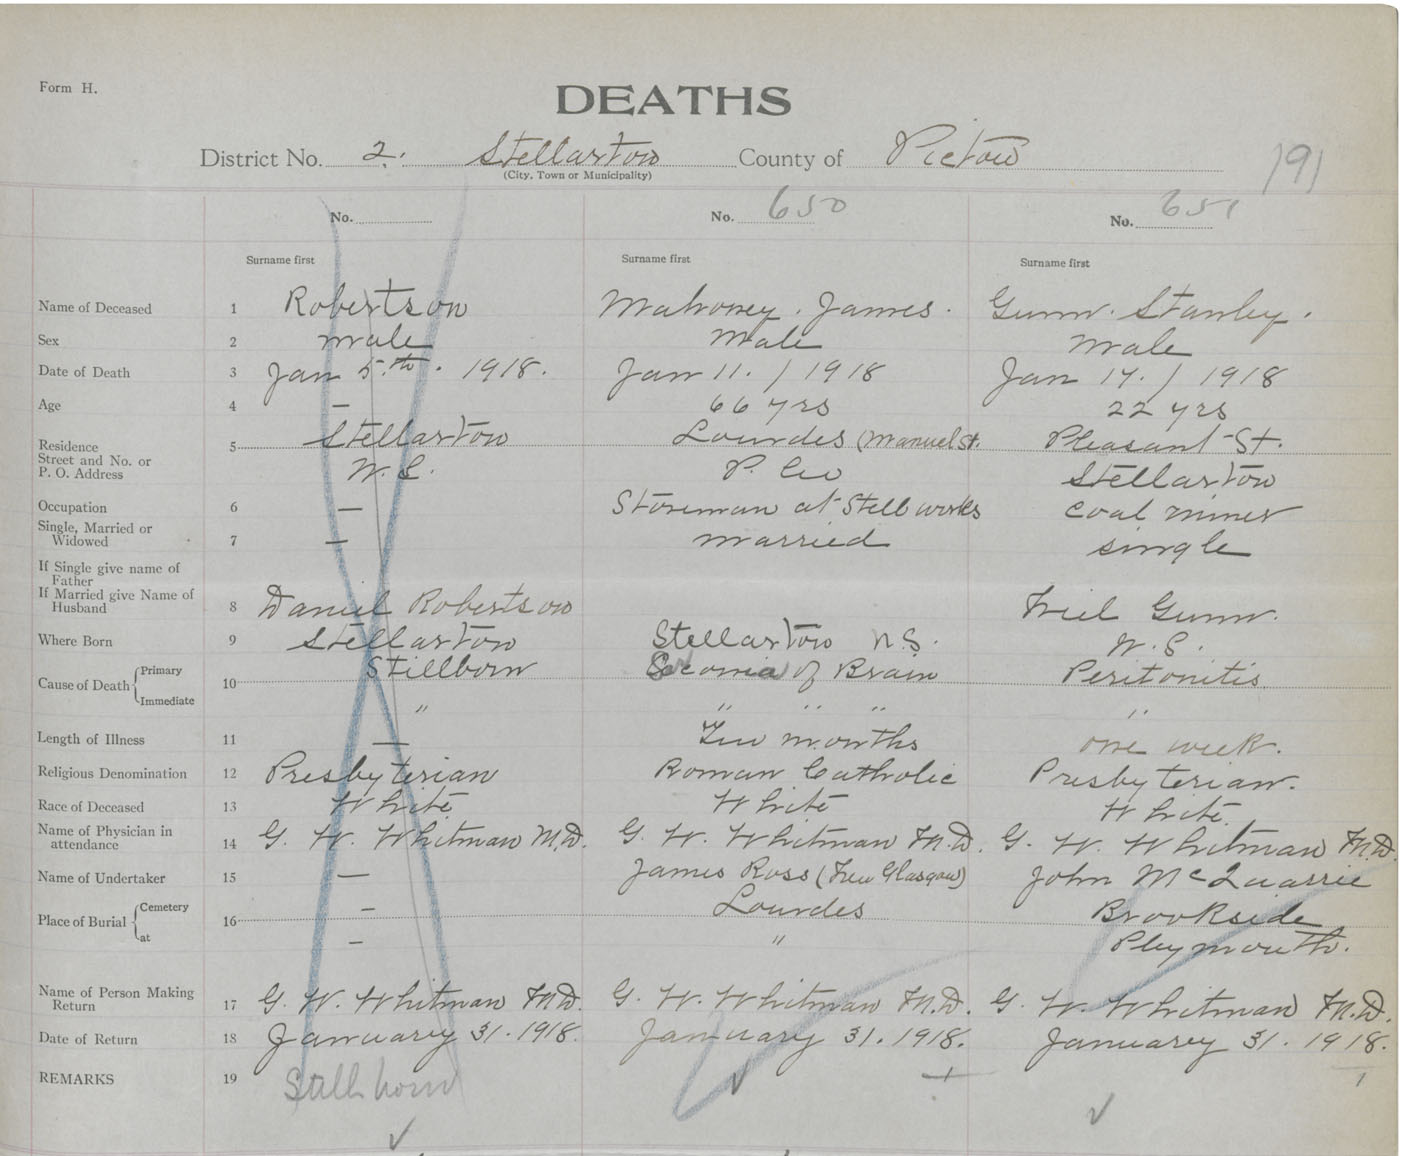 Form H.
DEATHS
District No. 2. Stellarton County of Pictou
(City, Town or Municipality)
191
No. No. 650 No. 651
Surname first Surname first Surname first
Name of Deceased 1 Robertson Mahoney. James. Gunn. Stanley.
Sex 2 male Male male
Date of Death 3 Jan 5th. 1918. Jan 11. / 1918 Jan 17. / 1918
Age 4 — 66 yrs 22 yrs
Residence 5 Stellarton Lourdes (Manuel St. Pleasant St.
Street and No. or
P. O. Address N.S. P. Co Stellarton
Occupation 6 — Storeman at Steel works coal miner
Single, Married or
Widowed 7 — married single
If Single give name of
Father
If Married give Name of
Husband 8 Daniel Robertson Gunn.
Where Born 9 Stellarton Stellarton N.S. N.S.
Cause of Death Primary 10 Stillborn of Brain Peritonitis
Immediate " " " " "
Length of Illness 11 — Few months one week.
Religious Denomination 12 Presbyterian Roman Catholic Presbyterian.
Race of Deceased 13 White White White.
Name of Physician in
attendance 14 G. W. Whitman M.D. G. W. Whitman M.D. G. W. Whitman M.D.
Name of Undertaker 15 — James Ross (New Glasgow) John McQuarrie
Place of Burial Cemetery 16 — Lourdes Brookside
at — " Plymouth.
Name of Person Making
Return 17 G. W. Whitman M.D. G. W. Whitman M.D. G. W. Whitman M.D.
Date of Return 18 January 31. 1918. January 31. 1918. January 31. 1918.
REMARKS 19 Still born